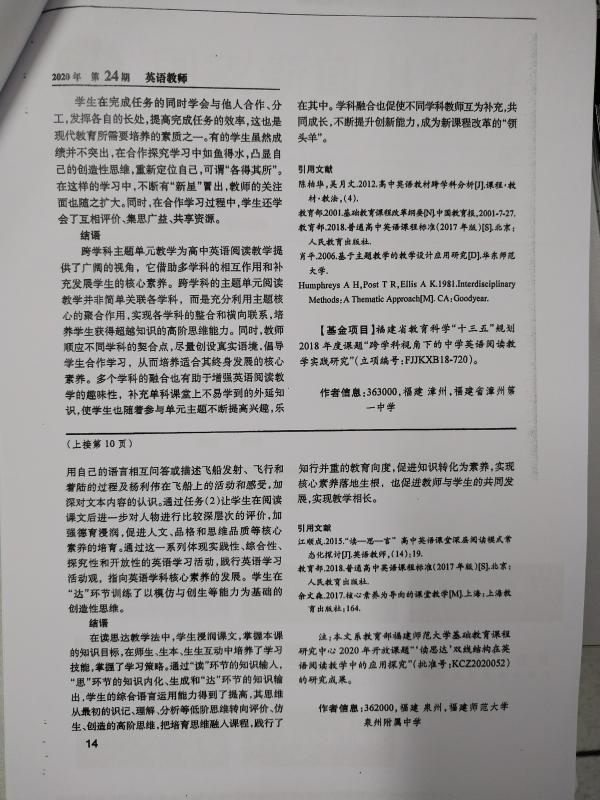 2020年 第24期 英语教师
学生在完成任务的同时学会与他人合作、分
工,发挥各自的长处,提高完成任务的效率,这也是
现代教育所需要培养的素质之一。有的学生虽然成
绩并不突出,在合作探究学习中如鱼得水,凸显自
己的创造性思维,重新定位自己,可谓“各得其所”。
在这样的学习中,不断有“新星”冒出,教师的关注
面也随之扩大。同时,在合作学习过程中,学生还学
会了互相评价、集思广益、共享资源。
结语
跨学科主题单元教学为高中英语阅读教学提
供了广阔的视角，它借助多学科的相互作用和补
充发展学生的核心素养。跨学科的主题单元阅读
教学并非简单关联各学科，而是充分利用主题核
心的聚合作用,实现各学科的整合和横向联系,培
养学生获得超越知识的高阶思维能力。同时,教师
顺应不同学科的契合点,尽量创设真实语境,倡导
学生合作学习，从而培养适合其终身发展的核心
素养。多个学科的融合也有助于增强英语阅读教
学的趣味性，补充单科课堂上不易学到的外延知
识,使学生也随着参与单元主题不断提高兴趣,乐
在其中。学科融合也促使不同学科教师互为补充,共
同成长,不断提升创新能力,成为新课程改革的“领
头羊”。
引用文献
陈柏华,吴月文.2012.高中英语教材跨学科分析[J].课程·教
材·教法,(4).
教育部.2001.基础教育课程改革纲要[N].中国教育报,2001-7-27.
教育部.2018.普通高中英语课程标准(2017年版)[S].北京:
人民教育出版社.
肖平.2006.基于主题教学的教学设计应用研究[D].华东师范
大学.
Humphreys A H,Post T R,Ellis A K.1981.Interdisciplinary
Methods:A Thematic Approach[M]. CA:Goodyear.
【基金项目】福建省教育科学“十三五”规划
2018年度课题“跨学科视角下的中学英语阅读教
学实践研究”(立项编号:FJJKXB18-720)。
作者信息:363000,福建 漳州,福建省漳州第
一中学
(上接第10页)
用自己的语言相互问答或描述飞船发射、飞行和
着陆的过程及杨利伟在飞船上的活动和感受,加
深对文本内容的认识。通过任务(2)让学生在阅读
课文后进一步对人物进行比较深层次的评价,加
强德育浸润,促进人文、品格和思维品质等核心
素养的培育。通过这一系列体现实践性、综合性、
探究性和开放性的英语学习活动,践行英语学习
活动观，指向英语学科核心素养的发展。学生在
“达”环节训练了以模仿与创生等能力为基础的
创造性思维。
结语
在读思达教学法中,学生浸润课文,掌握本课
的知识目标,在师生、生本、生生互动中培养了学习
技能,掌握了学习策略。通过“读”环节的知识输入,
“思”环节的知识内化、生成和“达”环节的知识输
出,学生的综合语言运用能力得到了提高,其思维
从最初的识记、理解、分析等低阶思维转向评价、仿
生、创造的高阶思维,把培育思维融入课程,践行了
知行并重的教育向度,促进知识转化为素养,实现
核心素养落地生根，也促进教师与学生的共同发
展,实现教学相长。
引用文献
江顺成.2015.“读—思—言”高中英语课堂深层阅读模式常
态化探讨[J].英语教师,(14):19.
教育部.2018.普通高中英语课程标准(2017年版)[S].北京:
人民教育出版社.
余文森.2017.核心素养为导向的课堂教学[M].上海:上海教
育出版社:164.
注:本文系教育部福建师范大学基础教育课程
研究中心2020年开放课题“‘读思达’双线结构在英
语阅读教学中的应用探究”(批准号:KCZ2020052)
的研究成果。
作者信息:362000,福建 泉州,福建师范大学
泉州附属中学
14